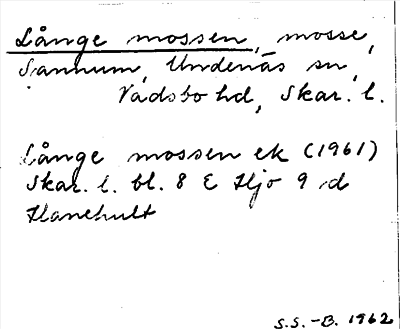 Långe mossen, mosse,
Sannum, Undenäs sn,
Vadsbo hd, Skar. l.
Långe mossen ek (1961)
Skar. l. bl. 8 E Hjo 9 d
Hanehult
S.S.-B. 1962